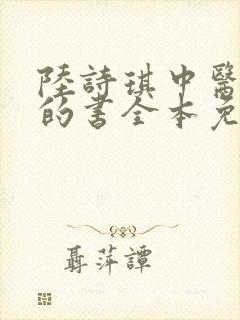 陸詩琪中醫
的書全本免
聶萍譚